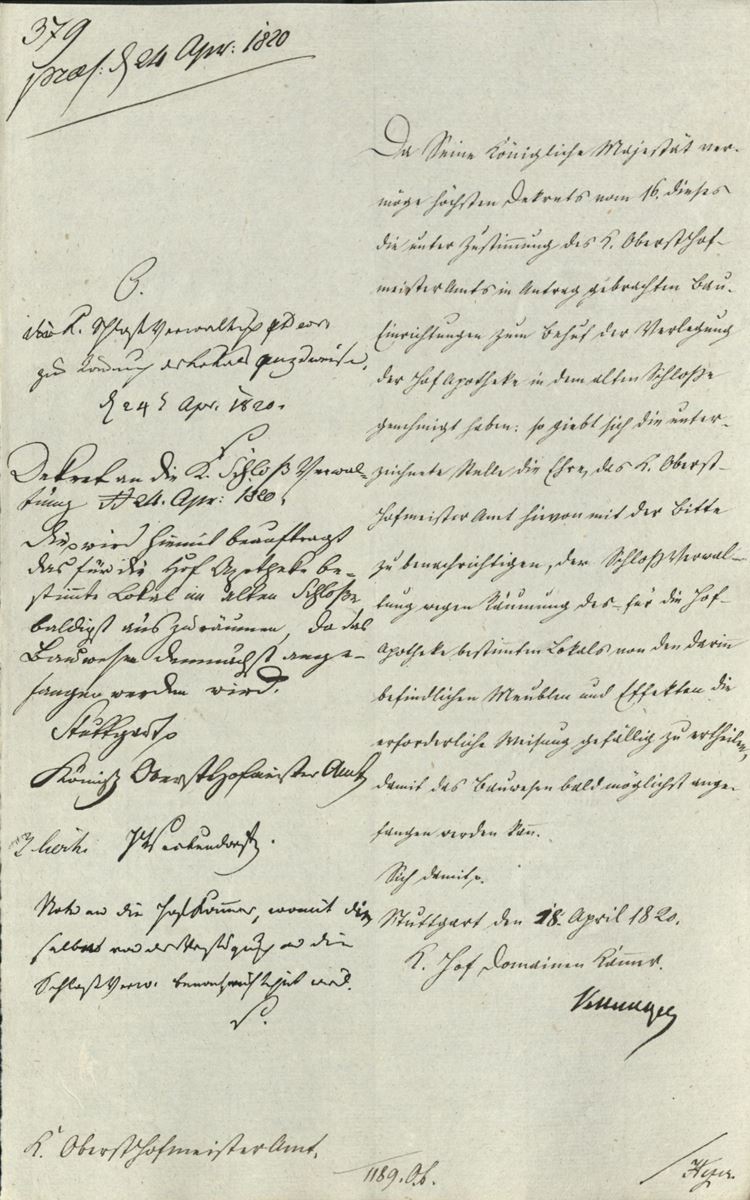 379
præs: d 24 Apr: 1820
B.
K. Schloß Verwaltung
zu
d 24 t Apr. 1820.
S
Dekret an die K. Schloß Verwal-
tung dd 24. Apr: 1820.
Die wird hiemit beauftragt
das für die Hof Apotheke be-
stimmte Lokal im alten Schloße
baldigst auszuräumen, da das
Bauwesen demnächst ange-
fangen werden wird.
Stuttgart
Königl. Oberst Hofmeister Amt
Seckendorff.
Note an die Hof Kammer, womit die
selbe von der Verfügung an die
Schloß Verw. benachrichtigt wird.
S.
Da Seine Königliche Majestät ver-
möge höchsten Dekrets vom 16. dieses
die unter Zustimmung des K. Oberst Hof-
meister Amts in Antrag gebrachten Bau-
Einrichtungen zum Behuf der Verlegung
der Hof Apotheke in dem alten Schloße
genehmigt haben: so giebt sich die unter-
zeichnete Stelle die Ehre, das K. Oberst-
Hofmeister Amt hievon mit der Bitte
zu benachrichtigen, der Schloß Verwal-
tung wegen Räumung des für die Hof-
Apotheke bestimmten Lokals von den darin
befindlichen Meublen und Effekten die
erforderliche Weisung gefällig zu ertheilen,
damit das Bauwesen bald möglichst ange-
fangen werden kann.
Sich damit
Stuttgart den 18. April 1820.
K. Hof Domainen Kammer.
K. Oberst Hofmeister Amt.
1189. O.b.